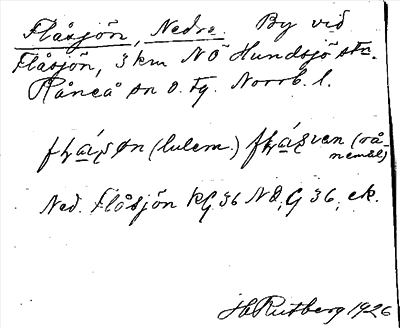 Flåsjön, Nedre. By vid
Flåsjön, 3 km NÖ Hundsjö stn.
Råneå sn o. tg. Norrb. l.
(lulem.) (rå-
nemål)
Ned. Flåsjön RG 36 NB, G 36, ek.
H Rutberg 1926